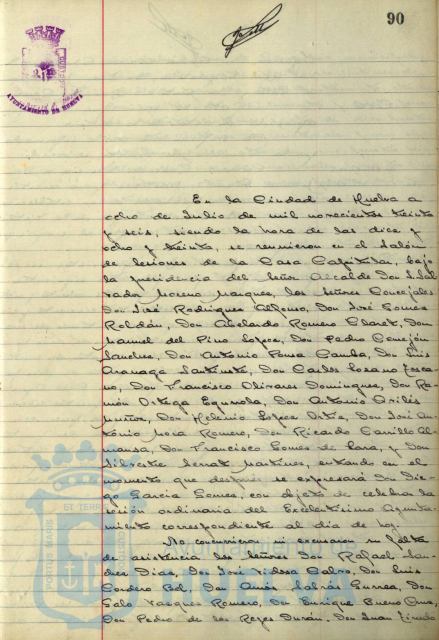 90
AYUNTAMIENTO DE HUELVA
En la Ciudad de Huelva a
ocho de Julio de mil novecientos treinta
y seis, siendo la hora de las diez y
ocho y treinta, se reunieron en el Salón
de Sesiones de la Casa Capitular, bajo
la presidencia del Señor Alcalde Don Sal-
vador Moreno Márquez, los Señores Concejales
Don José Rodríguez Alfonso, Don José Gómez
Roldán, Don Abelardo Romero Claret, Don
Manuel del Pino López, Don Pedro Cerrejón
Sánchez, Don Antonio Ponsa Gamba, Don Luis
Don Carlos Lozano Tosca-
no, Don Francisco Olivares Domínguez, Don Ra-
món Ortega Don Antonio
Muñoz, Don López Ortiz, Don José An-
tonio Mora Romero, Don Ricardo Carrillo Al-
mansa, Don Francisco Gómez de Lara, y Don
Silvestre Martínez, entrando en el
momento que después se expresará Don Die-
go García Gómez, con objeto de celebrar la
sesión ordinaria del Excelentísimo Ayunta-
miento correspondiente al día de hoy.
No concurrieron ni excusaron su falta
de asistencia los Señores Don Rafael Sán-
chez Díaz, Don José Calvo, Don Luis
Cordero Bel, Don Amós Sabrás Gurrea, Don
Vázquez Romero, Don Enrique Bueno Cruz,
Don Pedro de los Reyes Durán, Don Juan
PORTUS MARIS ET TERRAE CUSTODIA
HUELVA